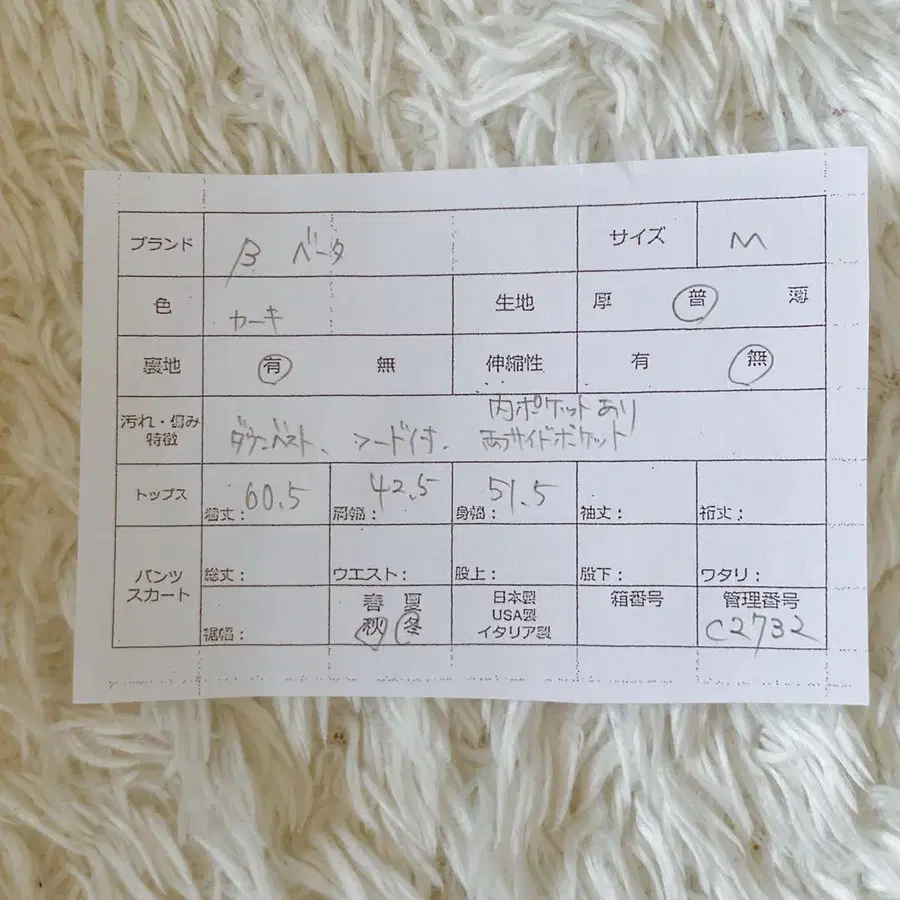 ブランド β ベータ サイズ M
色 カーキ 生地 厚 普 薄
裏地 有 無 伸縮性 有 無
汚れ・傷み
特徴
内ポケットあり
ダウンベスト、フード付、両サイドポケット
トップス 着丈:60.5 肩幅:42.5 身幅:51.5 袖丈: 裄丈:
パンツ
スカート
総丈: ウエスト: 股上: 股下: ワタリ:
裾幅:
春 夏
秋 冬
日本製
USA製
イタリア製
箱番号
管理番号
C2732